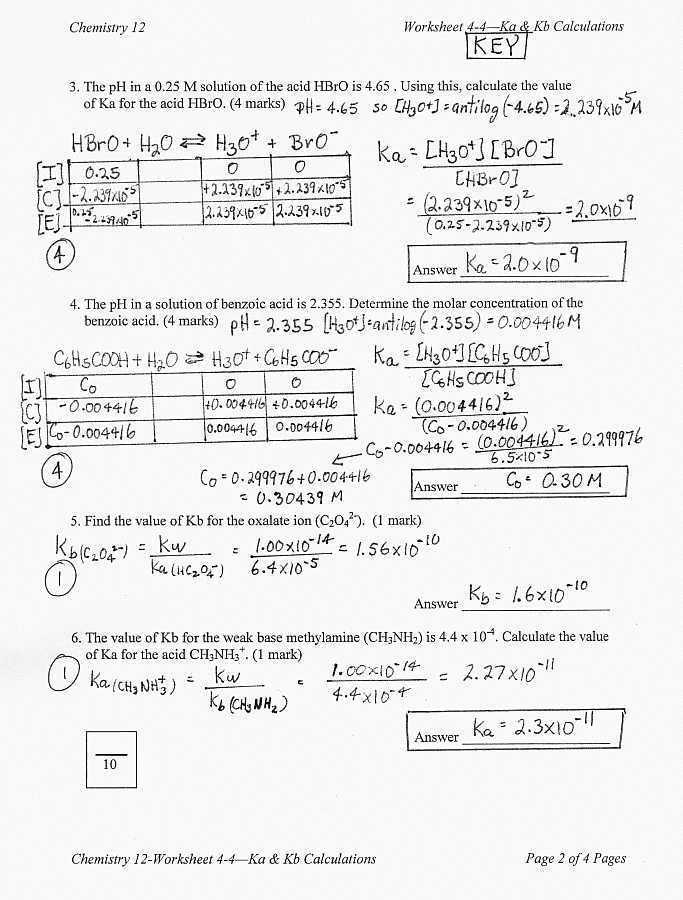 Chemistry 12 Worksheet 4-4—Ka & Kb Calculations
KEY
3. The pH in a 0.25 M solution of the acid HBrO is 4.65 . Using this, calculate the value
of Ka for the acid HBrO. (4 marks) pH = 4.65 so [H₃O+] = antilog(-4.65) = 2.239x10⁻⁵M
HBrO + H₂O ⇌ H₃O⁺ + BrO⁻
Ka = [H₃O⁺][BrO⁻]
[HBrO]
[I] 0.25 0 0
[C] -2.239x10⁻⁵ +2.239x10⁻⁵ +2.239x10⁻⁵
[E] 0.25-2.239x10⁻⁵ 2.239x10⁻⁵ 2.239x10⁻⁵
= (2.239x10⁻⁵)² = 2.0x10⁻⁹
(0.25-2.239x10⁻⁵)
4
Answer Ka = 2.0x10⁻⁹
4. The pH in a solution of benzoic acid is 2.355. Determine the molar concentration of the
benzoic acid. (4 marks) pH = 2.355 [H₃O+] = antilog(-2.355) = 0.004416M
C₆H₅COOH + H₂O ⇌ H₃O⁺ + C₆H₅COO⁻
Ka = [H₃O⁺][C₆H₅COO⁻]
[C₆H₅COOH]
[I] Co 0 0
[C] -0.004416 +0.004416 +0.004416
[E] Co-0.004416 0.004416 0.004416
Ka = (0.004416)²
(Co-0.004416)
Co-0.004416 = (0.004416)² = 0.299976
6.5x10⁻⁵
4
Co = 0.299976+0.004416
= 0.30439 M
Answer Co = 0.30M
5. Find the value of Kb for the oxalate ion (C₂O₄²⁻). (1 mark)
Kb(C₂O₄²⁻) = Kw = 1.00x10⁻¹⁴ = 1.56x10⁻¹⁰
Ka(HC₂O₄⁻) 6.4x10⁻⁵
1
Answer Kb = 1.6x10⁻¹⁰
6. The value of Kb for the weak base methylamine (CH₃NH₂) is 4.4 x 10⁻⁴. Calculate the value
of Ka for the acid CH₃NH₃⁺. (1 mark)
1
Ka(CH₃NH₃⁺) = Kw = 1.00x10⁻¹⁴ = 2.27x10⁻¹¹
Kb(CH₃NH₂) 4.4x10⁻⁴
Answer Ka = 2.3x10⁻¹¹
10
Chemistry 12-Worksheet 4-4—Ka & Kb Calculations Page 2 of 4 Pages